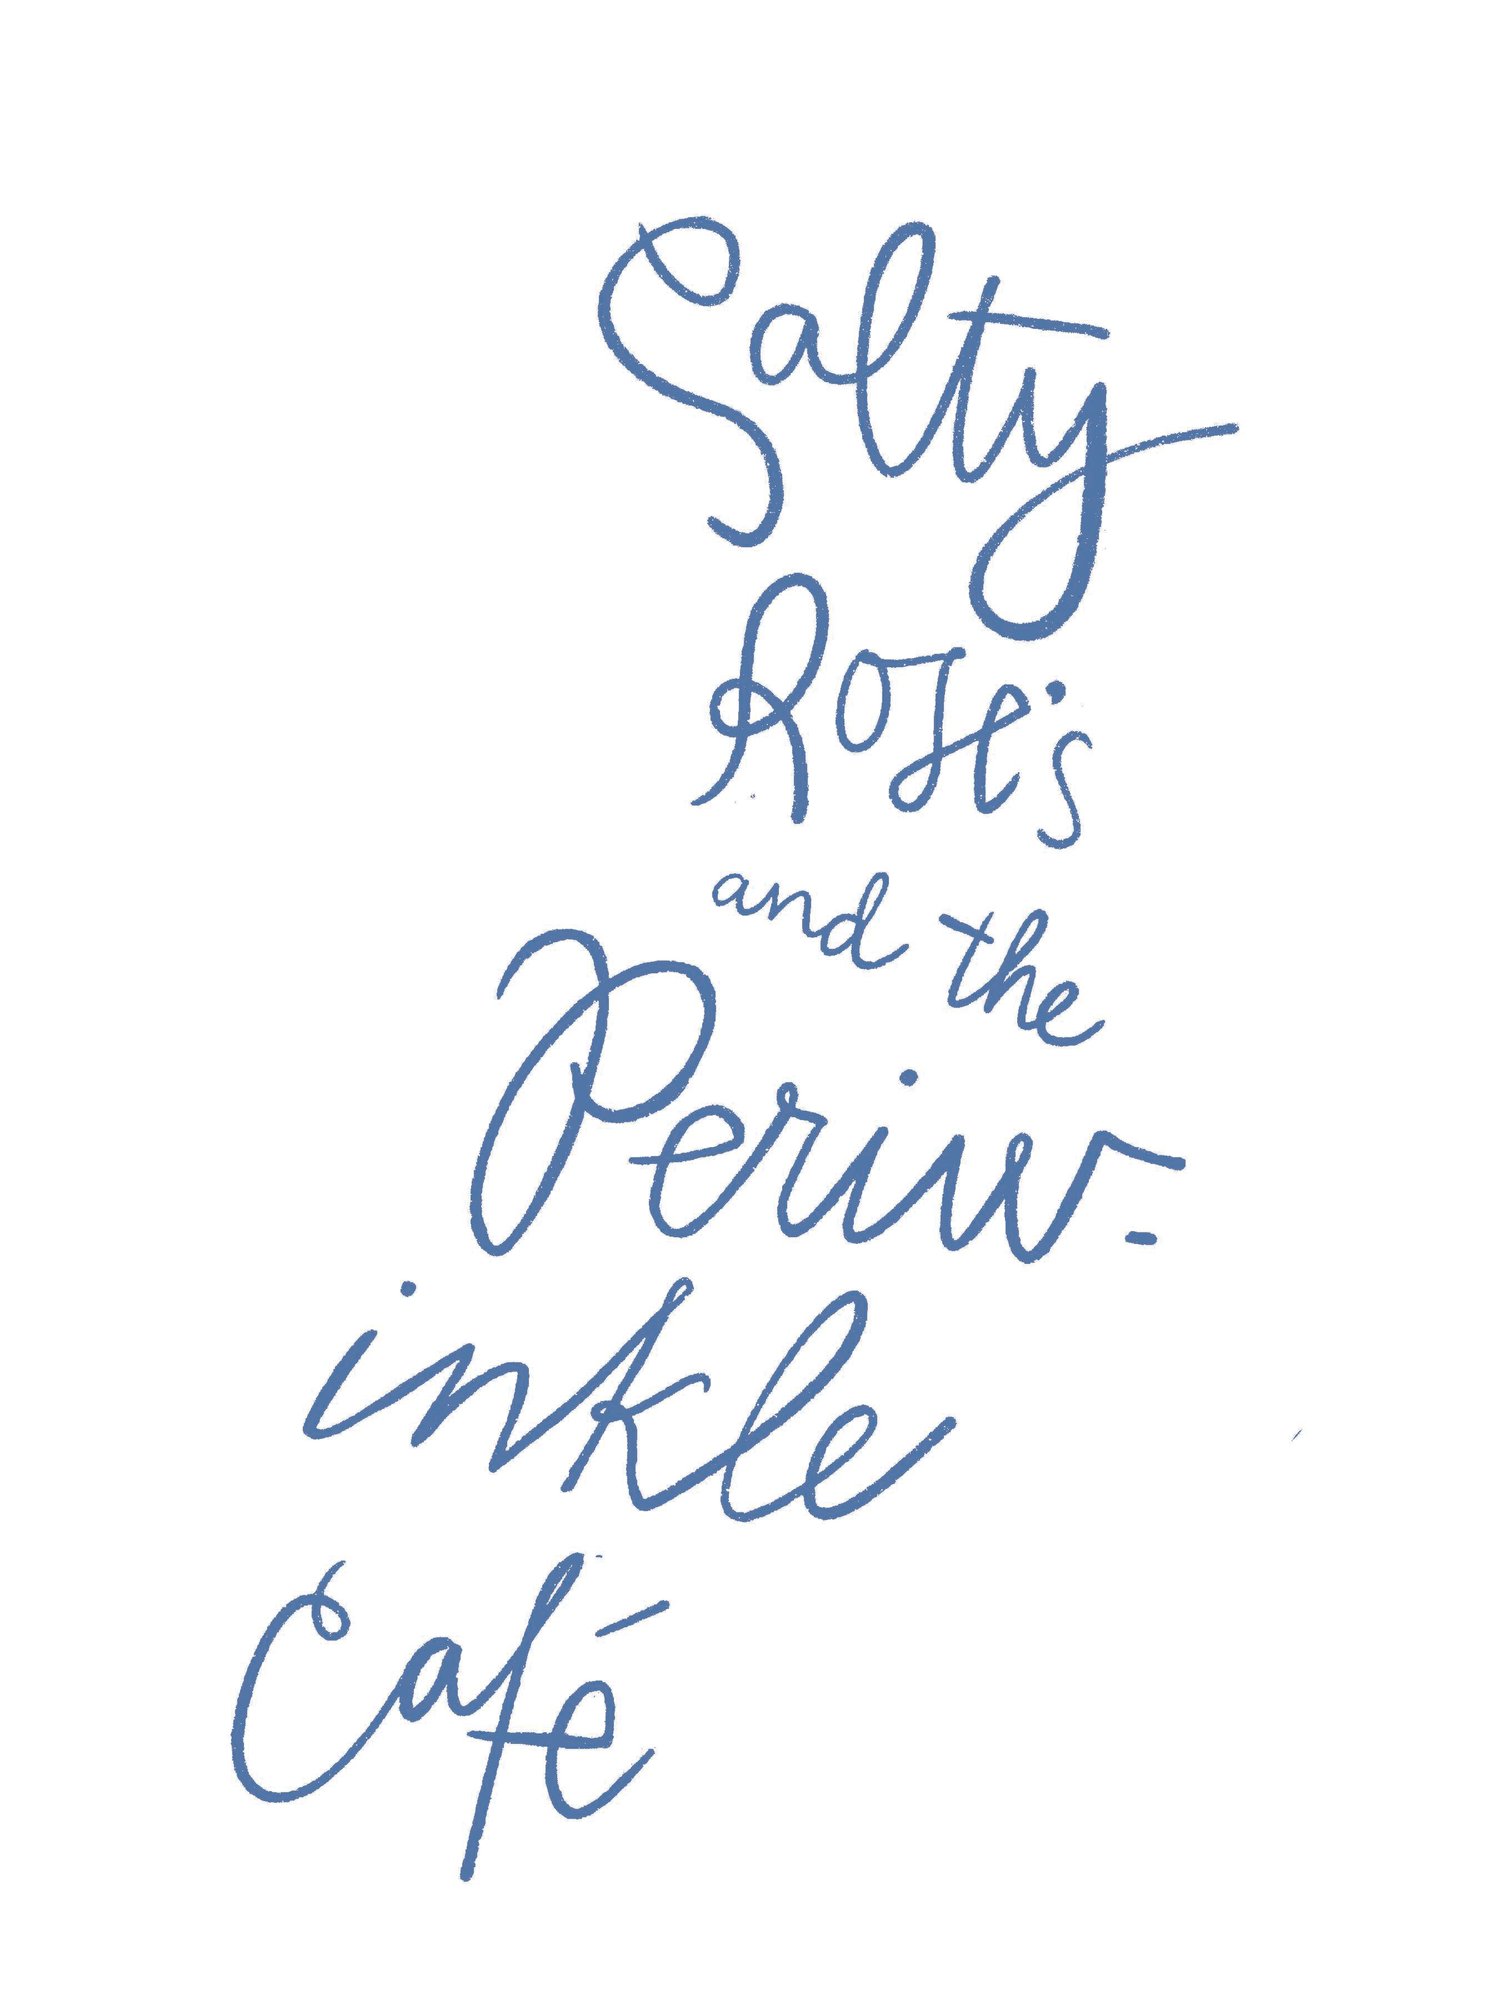 Salty
Rose's
and the
Periw-
inkle
Café